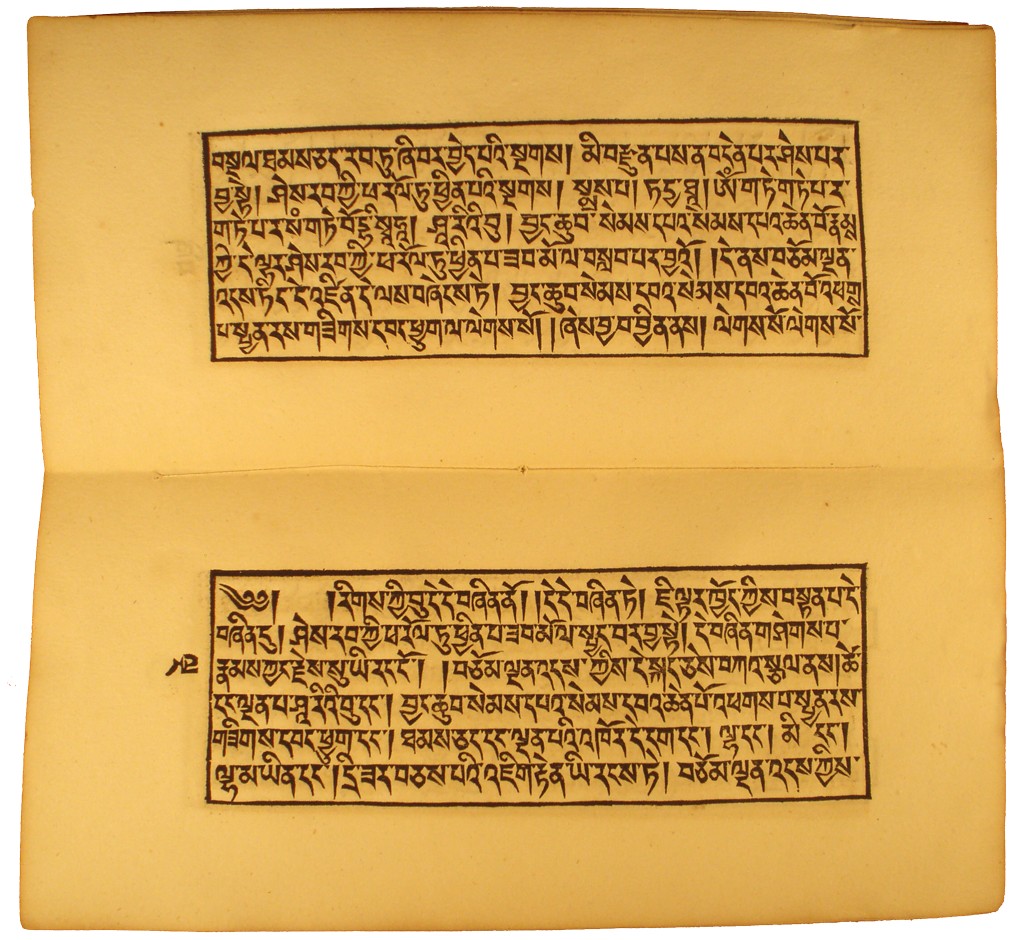 བསྔལ་ཐམས་ཅད་རབ་ཏུ་ཞི་བར་བྱེད་པའི་སྔགས། མི་བརྫུན་པས་ན་བདེན་པར་ཤེས་པར་
བྱ་སྟེ། ཤེས་རབ་ཀྱི་ཕ་རོལ་ཏུ་ཕྱིན་པའི་སྔགས། སྨྲས་པ། ཏདྱ་ཐཱ། ཨོཾ་ག་ཏེ་ག་ཏེ་པ་ར་
ག་ཏེ་པ་ར་སཾ་ག་ཏེ་བོ་དྷི་སྭཱ་ཧཱ། ཤཱ་རིའི་བུ། བྱང་ཆུབ་སེམས་དཔའ་སེམས་དཔའ་ཆེན་པོ་རྣམས་
ཀྱི་དེ་ལྟར་ཤེས་རབ་ཀྱི་ཕ་རོལ་ཏུ་ཕྱིན་པ་ཟབ་མོ་ལ་བསླབ་པར་བྱའོ། །དེ་ནས་བཅོམ་ལྡན་
འདས་ཏིང་ངེ་འཛིན་དེ་ལས་བཞེངས་ཏེ། བྱང་ཆུབ་སེམས་དཔའ་སེམས་དཔའ་ཆེན་པོ་འཕགས་
པ་སྤྱན་རས་གཟིགས་དབང་ཕྱུག་ལ་ལེགས་སོ། །ཞེས་བྱ་བ་བྱིན་ནས། ལེགས་སོ་ལེགས་སོ་
༄༅། །རིགས་ཀྱི་བུ་དེ་དེ་བཞིན་ནོ། །དེ་དེ་བཞིན་ཏེ། ཇི་ལྟར་ཁྱོད་ཀྱིས་བསྟན་པ་དེ་
བཞིན་དུ། ཤེས་རབ་ཀྱི་ཕ་རོལ་ཏུ་ཕྱིན་པ་ཟབ་མོ་ལ་སྤྱད་པར་བྱ་སྟེ། དེ་བཞིན་གཤེགས་པ་
རྣམས་ཀྱང་རྗེས་སུ་ཡི་རང་ངོ་། །བཅོམ་ལྡན་འདས་ཀྱིས་དེ་སྐད་ཅེས་བཀའ་སྩལ་ནས། ཚེ་
དང་ལྡན་པ་ཤཱ་རིའི་བུ་དང་། བྱང་ཆུབ་སེམས་དཔའ་སེམས་དཔའ་ཆེན་པོ་འཕགས་པ་སྤྱན་རས་
གཟིགས་དབང་ཕྱུག་དང་། ཐམས་ཅད་དང་ལྡན་པའི་འཁོར་དེ་དག་དང་། ལྷ་དང་། མི་དང་།
ལྷ་མ་ཡིན་དང་། དྲི་ཟར་བཅས་པའི་འཇིག་རྟེན་ཡི་རངས་ཏེ། བཅོམ་ལྡན་འདས་ཀྱིས་